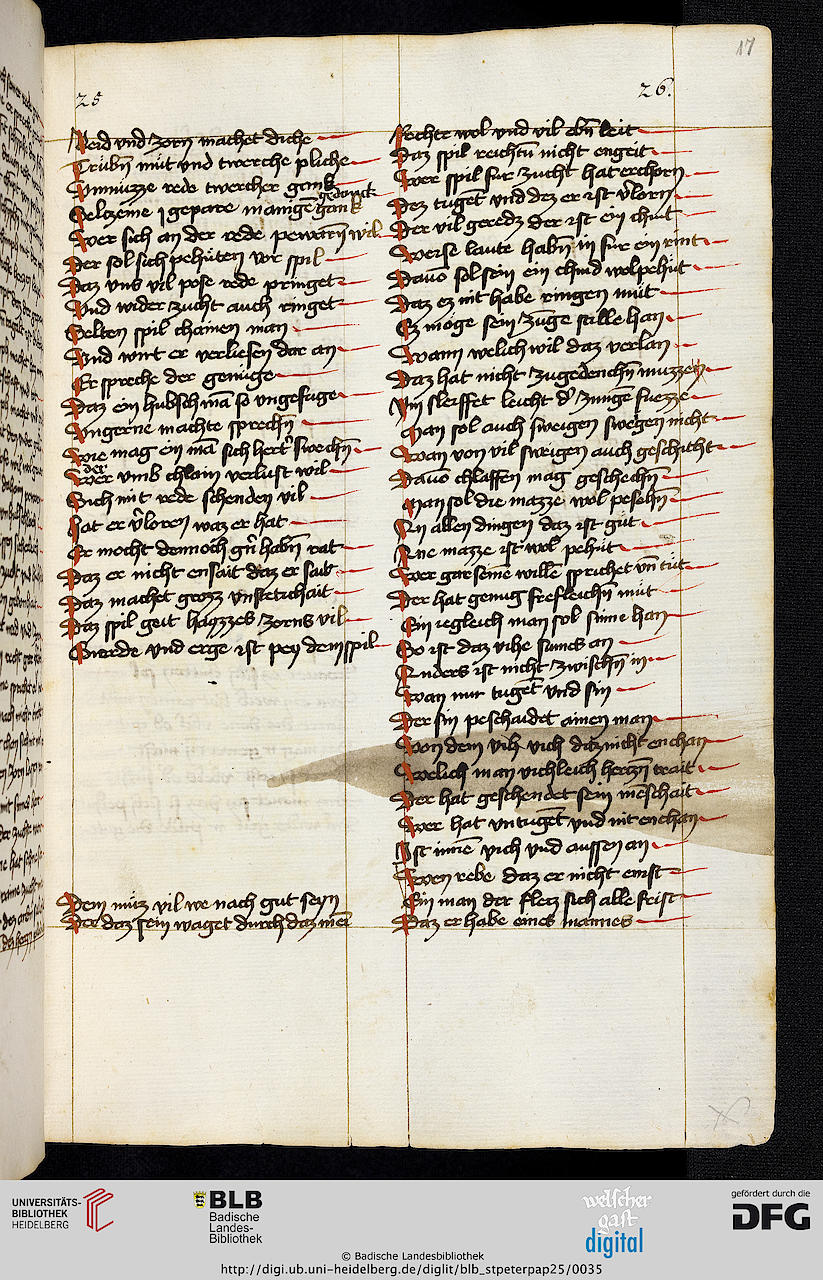 17
25
Neid vnd zorn machet diche
Trübn̄ müt vnd twerche pliche
Vnnüzze rede twercher gank
Selczeme gepare manigen̄ gedanck
gank
Wer sich an der rede pewarn̄ wil
Der sol sich pehüten vor spil
Daz vns vil pose rede pringet
Vnd wider zucht auch ringet
Selten spil chainen man
Vnd wirt er verliesen dar an
Er spreche der genuge
Daz ein hubsch mā so vngefuge
Vngerne machte sprechn̄
Wie mag ein mā sich hert swechn̄
der
Wer vmb chlain verlust wil
Sich mit rede schenden vil
Hat er v̓loren waz er hat
Er mocht dennoch habn̄ rat
Daz er nicht ensait daz er sait
Daz machet grozz vnstetichait
Daz spil geit hazzes zorns vil
Swerde vnd erge ist pey dem spil
Dem müz vil we nach gut seyn
Der daz sein waget durch daz mer
26.
Rechte wol vnd vil ebn̄ leit
Daz spil reichtū nicht engeit
Wer spil fur zucht hat erchorn
Dez tuget̄ vnd dez er ist v̓lorn
Der vil geredz der ist ein chint
Weise laute habn̄ in fur ein rint
Dauō sol sein ein chind wolpehüt
Daz ez nit habe ringen müt
Ez möge sein zūge stille han
Wann welich wil daz verlan
Daz hat nicht zugedenchn̄ muzzen
Im sleiffet leicht d̓ zunge fuezze
Man sol auch sweigen sweigen nicht
Wan von vil sweigen auch geschicht
Dauō chlaffen mag geschechn̄
Man sol die mazze wol pesehn̄
An allen dingen daz ist güt
Ane mazze ist wol pehüt
Wer gar seine wille sprichet vn̄ tüt
Der hat genug frefleichn̄ müt
Ein iegleich man sol sinne han
So ist daz vihe sinnes an
Anders ist nicht zwischn̄ in
Wan nur tuget̄ vnd sin
Der sin peschaidet ainen man
Von dem vih vich daz nicht enchan
Welich man vichleich herczn̄ trait
Der hat geschendet sein mēschait
Wer hat vntuget̄ vnd nit enchan
Ist innē vich vnd aussen an
Wen rebe daz er nicht einst
Ein man der fleiz sich alle frist
Daz er habe eines mannes
UNIVERSITÄTS-
BIBLIOTHEK
HEIDELBERG
BLB
Badische
Landes-
Bibliothek
welscher
gast
digital
gefördert durch die
DFG
© Badische Landesbibliothek
http://digi.ub.uni-heidelberg.de/diglit/blb_stpeterpap25/0035